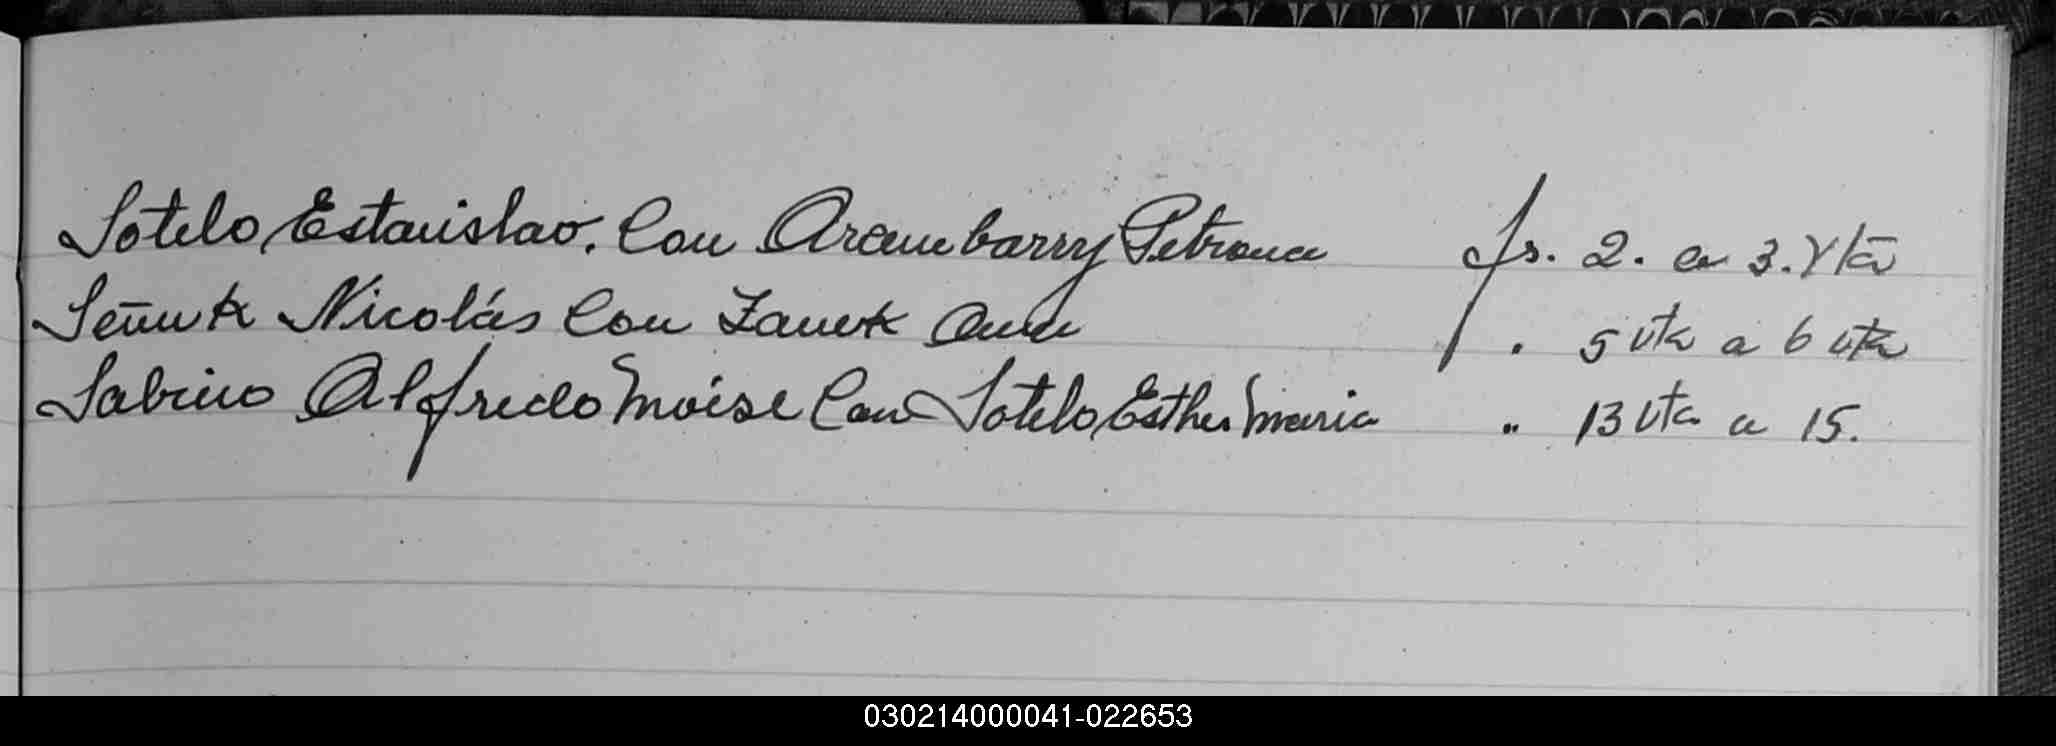 Sotelo Estanislao. Con Arambarry Petrona fs. 2. a 3. Vta
Señuk Nicolás Con Zanek Ana " 5 vta a 6 vta
Sabino Alfredo Moise Con Sotelo Esther Maria " 13 vta a 15.
030214000041-022653